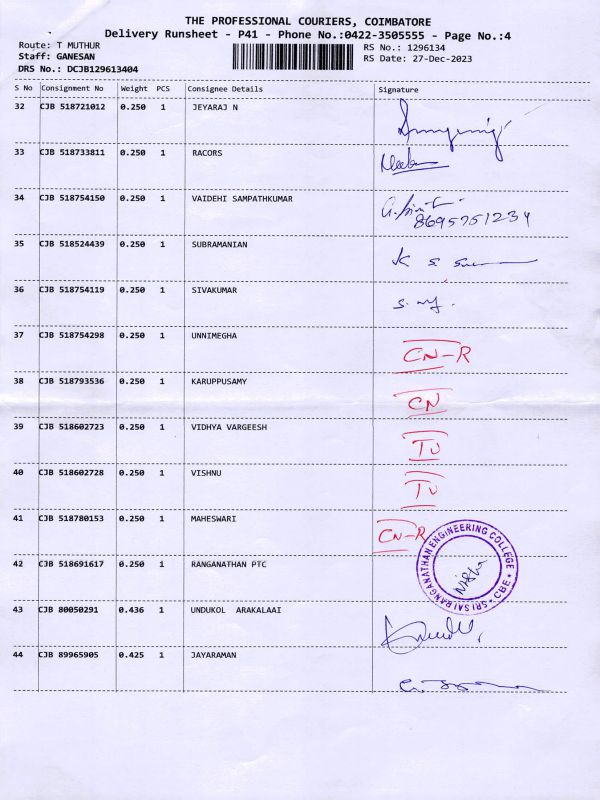 THE PROFESSIONAL COURIERS, COIMBATORE
Delivery Runsheet - P41 - Phone No.:0422-3505555 - Page No.:4
Route: T MUTHUR RS No.: 1296134
Staff: GANESAN RS Date: 27-Dec-2023
DRS No.: DCJB129613404
S No Consignment No Weight PCS Consignee Details Signature
32 CJB 518721012 0.250 1 JEYARAJ N
33 CJB 518733811 0.250 1 RACORS
34 CJB 518754150 0.250 1 VAIDEHI SAMPATHKUMAR
8695751234
35 CJB 518524439 0.250 1 SUBRAMANIAN
36 CJB 518754119 0.250 1 SIVAKUMAR
37 CJB 518754298 0.250 1 UNNIMEGHA CN-R
38 CJB 518793536 0.250 1 KARUPPUSAMY CN
39 CJB 518602723 0.250 1 VIDHYA VARGEESH
40 CJB 518602728 0.250 1 VISHNU
41 CJB 518780153 0.250 1 MAHESWARI CN-R
42 CJB 518691617 0.250 1 RANGANATHAN PTC
SRI SAI RANGANATHAN ENGINEERING COLLEGE * CBE *
43 CJB 80050291 0.436 1 UNDUKOL ARAKALAAI
44 CJB 89965905 0.425 1 JAYARAMAN